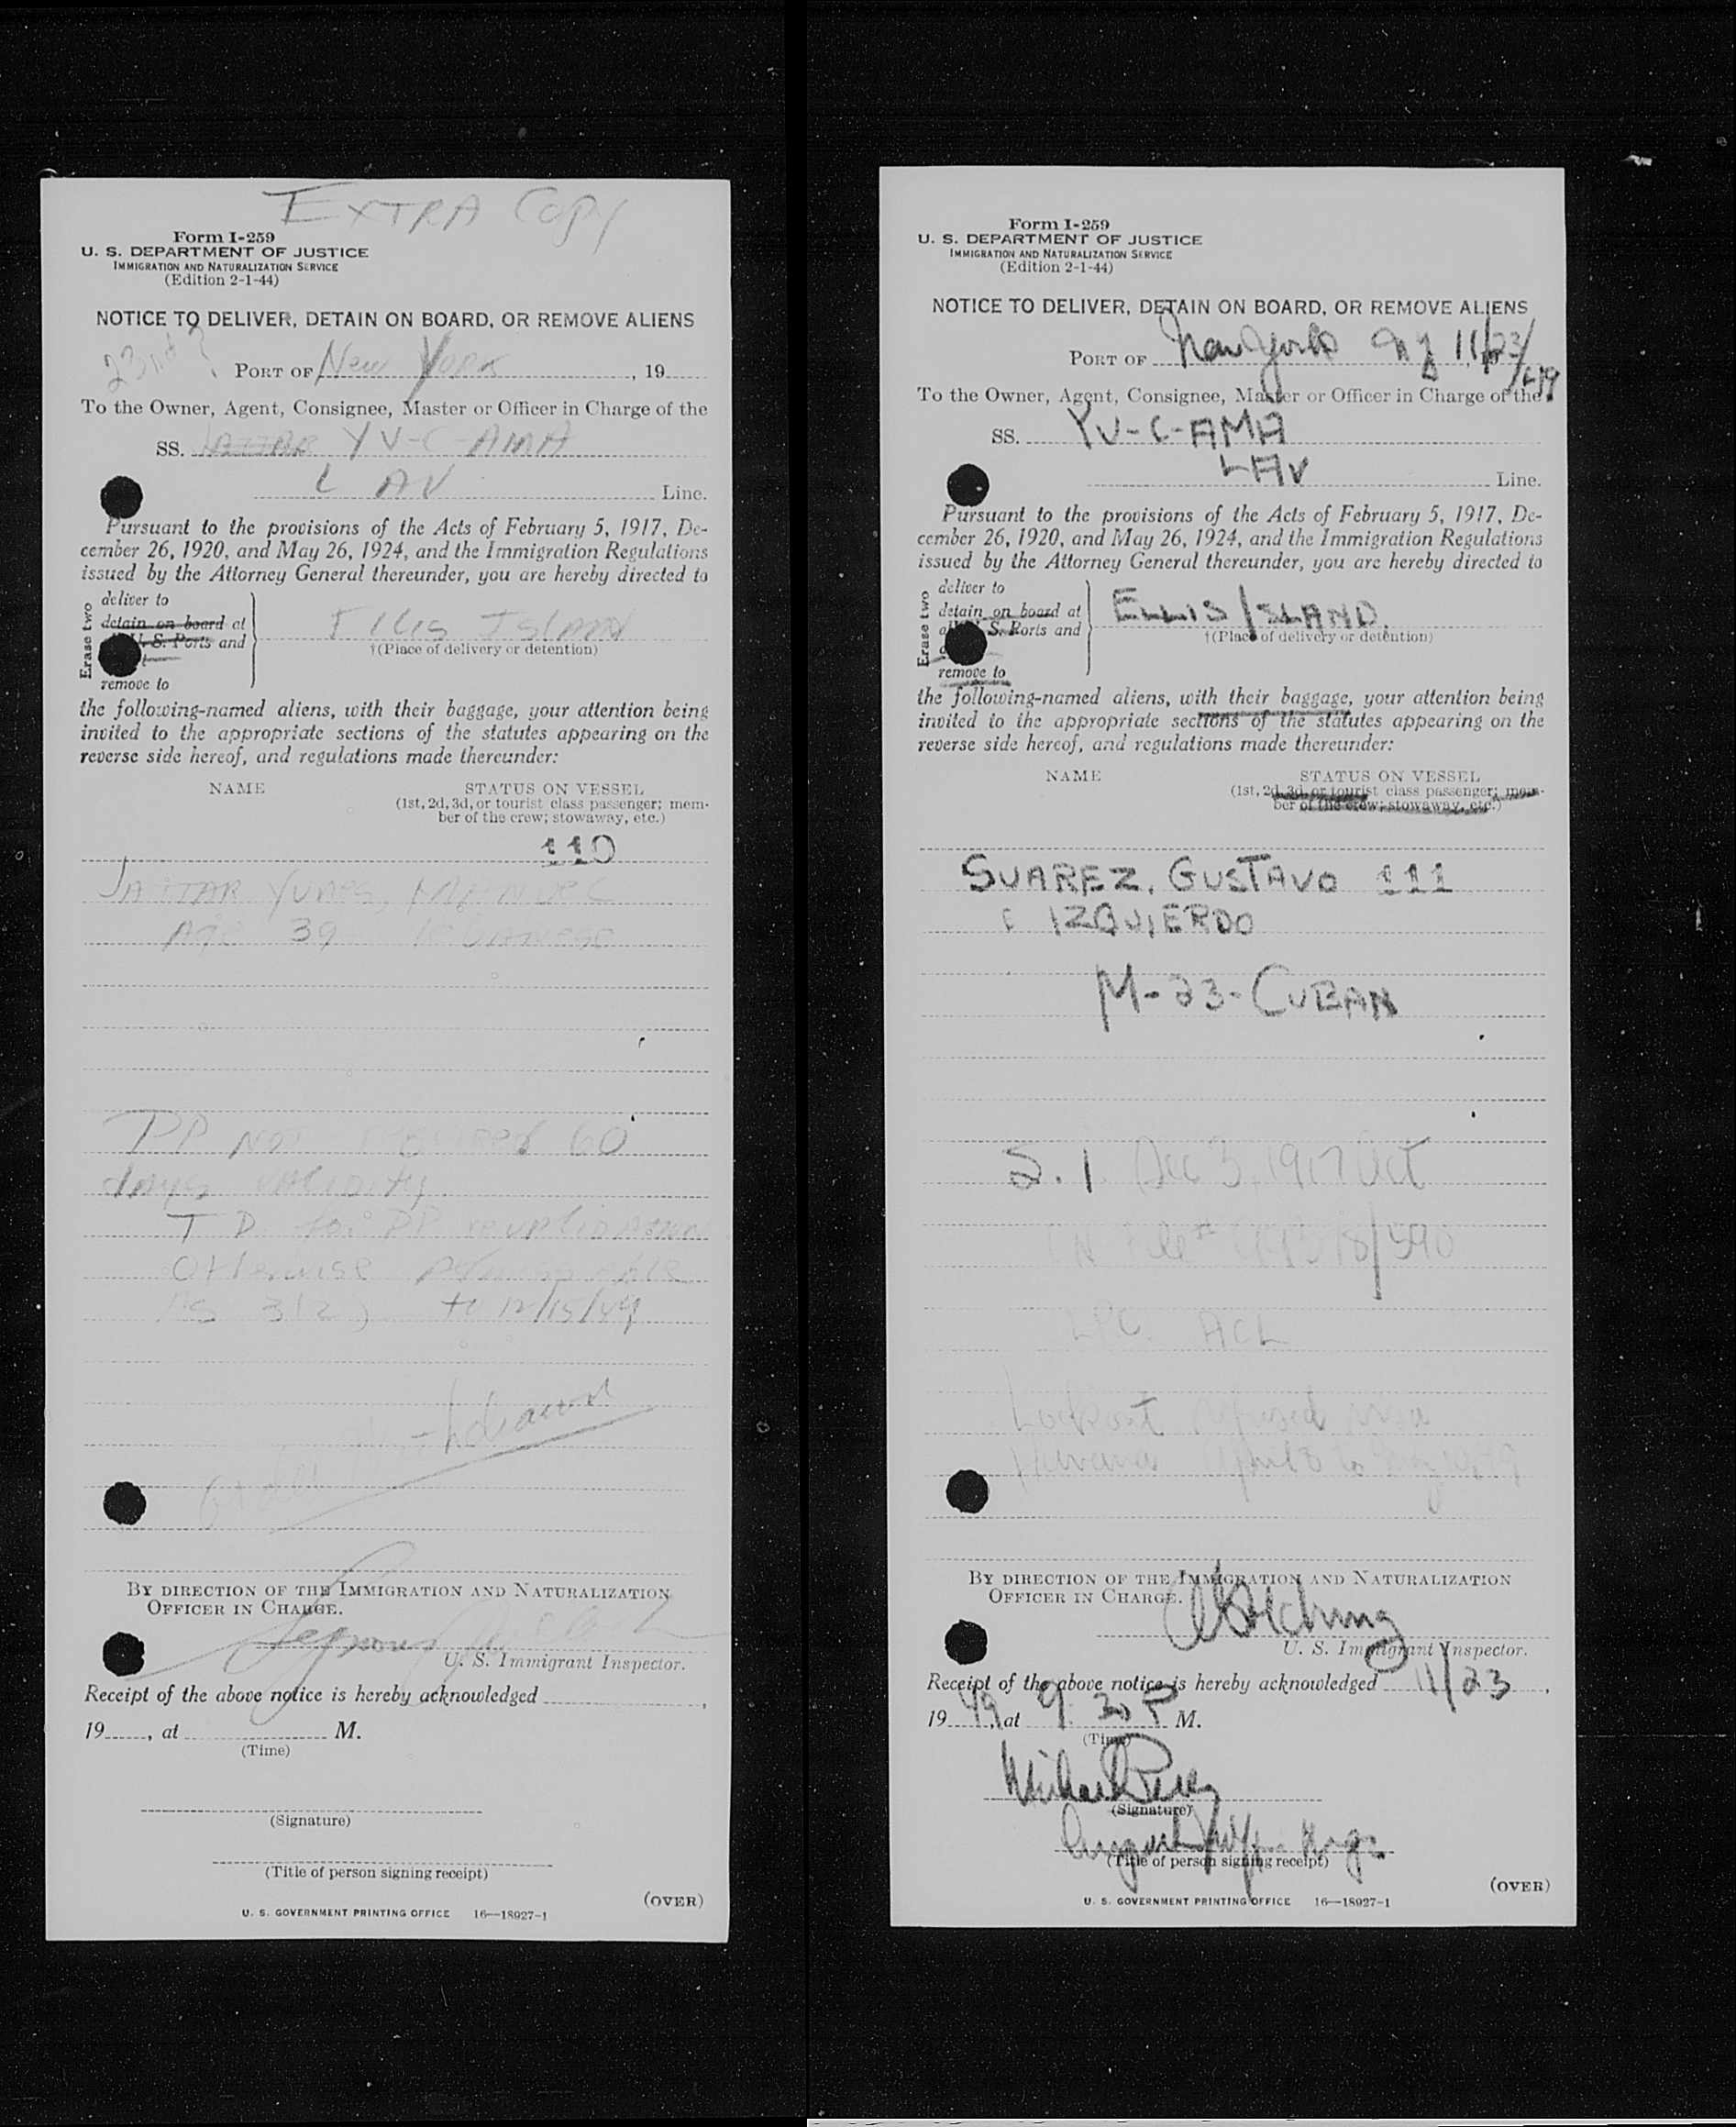 EXTRA COPY
Form I-259
U. S. DEPARTMENT OF JUSTICE
IMMIGRATION AND NATURALIZATION SERVICE
(Edition 2-1-44)
NOTICE TO DELIVER, DETAIN ON BOARD, OR REMOVE ALIENS
PORT OF New York, 19
To the Owner, Agent, Consignee, Master or Officer in Charge of the
SS. YV-C-AMA
LAV Line.
Pursuant to the provisions of the Acts of February 5, 1917, De-
cember 26, 1920, and May 26, 1924, and the Immigration Regulations
issued by the Attorney General thereunder, you are hereby directed to
Erase two
deliver to
detain on board at
U. S. Ports and
remove to
Ellis Island
†(Place of delivery or detention)
the following-named aliens, with their baggage, your attention being
invited to the appropriate sections of the statutes appearing on the
reverse side hereof, and regulations made thereunder:
NAME STATUS ON VESSEL
(1st, 2d, 3d, or tourist class passenger; mem-
ber of the crew; stowaway, etc.)
110
YUNES,
Age 39 LEBANESE
PP NOT 60
days validity
T D for PP
Otherwise
AS 3(2) to 12/15/49
Withdrawn
BY DIRECTION OF THE IMMIGRATION AND NATURALIZATION
OFFICER IN CHARGE.
U. S. Immigrant Inspector.
Receipt of the above notice is hereby acknowledged ,
19 , at M.
(Time)
(Signature)
(Title of person signing receipt)
(OVER)
U. S. GOVERNMENT PRINTING OFFICE 16—18927-1
Form I-259
U. S. DEPARTMENT OF JUSTICE
IMMIGRATION AND NATURALIZATION SERVICE
(Edition 2-1-44)
NOTICE TO DELIVER, DETAIN ON BOARD, OR REMOVE ALIENS
PORT OF New York NY 11/23/49
To the Owner, Agent, Consignee, Master or Officer in Charge of the
SS. YV-C-AMA
LAV Line.
Pursuant to the provisions of the Acts of February 5, 1917, De-
cember 26, 1920, and May 26, 1924, and the Immigration Regulations
issued by the Attorney General thereunder, you are hereby directed to
Erase two
deliver to
detain on board at
S. Ports and
remove to
ELLIS ISLAND
†(Place of delivery or detention)
the following-named aliens, with their baggage, your attention being
invited to the appropriate sections of the statutes appearing on the
reverse side hereof, and regulations made thereunder:
NAME STATUS ON VESSEL
(1st, 2d, 3d, or tourist class passenger; mem-
ber of the crew; stowaway, etc.)
SUAREZ, GUSTAVO 111
IZQUIERDO
M-23-CUBAN
S.I. Sec 3, 1917 Act
File # /590
LPC ACL
Lookout refused visa
Havana
BY DIRECTION OF THE IMMIGRATION AND NATURALIZATION
OFFICER IN CHARGE.
U. S. Immigrant Inspector.
Receipt of the above notice is hereby acknowledged 11/23,
19 49, at 9:30 P M.
(Time)
(Signature)
(Title of person signing receipt)
(OVER)
U. S. GOVERNMENT PRINTING OFFICE 16—18927-1